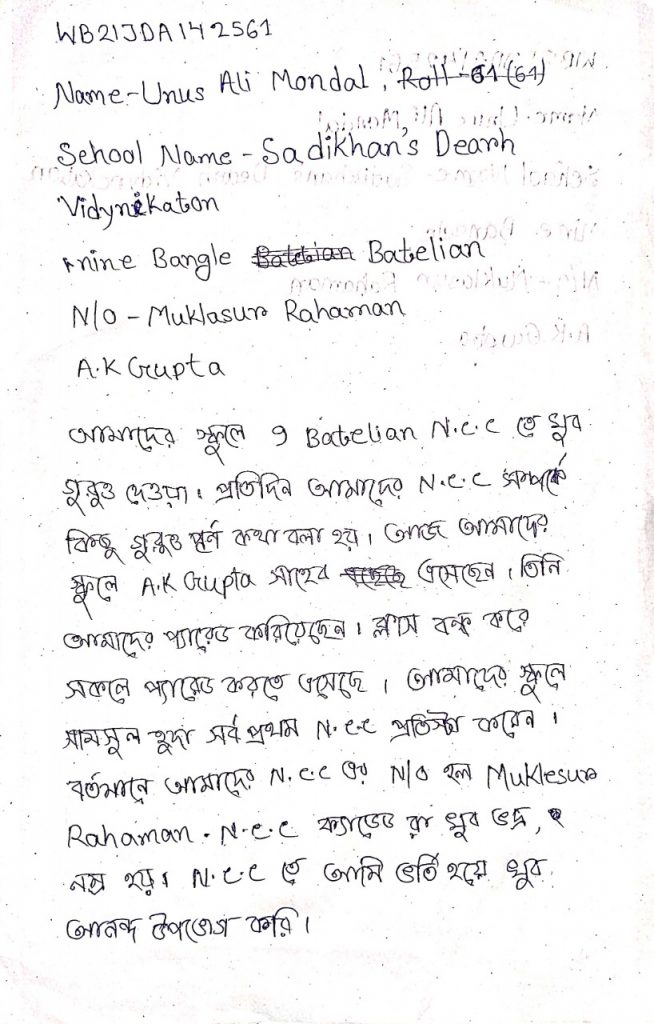 WB21JDA142561
Name-Unus Ali Mondal, Roll-61 (61)
School Name - Sadikhan's Dearh
Vidynikaton
nine Bangle Batelian
N/O - Muklasur Rahaman
A.K Grupta
আমাদের স্কুলে 9 Batelian N.C.C তে খুব
গুরুত্ত দেওয়া। প্রতিদিন আমাদের N.C.C সম্পর্কে
কিছু গুরুত্ত পূর্ন কথা বলা হয়। আজ আমাদের
স্কুলে A.K Grupta সাহেব এসেছেন। তিনি
আমাদের প্যারেড করিয়েছেন। ক্লাস বন্ধ করে
সকলে প্যারেড করতে এসেছে। আমাদের স্কুলে
সামসুল হুদা সর্ব প্রথম N.C.C প্রতিস্টা করেন।
বর্তমানে আমাদের N.C.C এর N/O হল Muklesur
Rahaman. N.C.C ক্যাডেড রা খুব ভদ্র,
নম্র হয়। N.C.C তে আমি ভর্তি হয়ে খুব
আনন্দ উপভোগ করি।